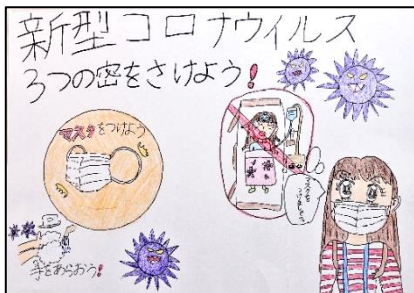 新型コロナウィルス
3つの密をさけよう!
マスクをつけよう
手をあらおう!